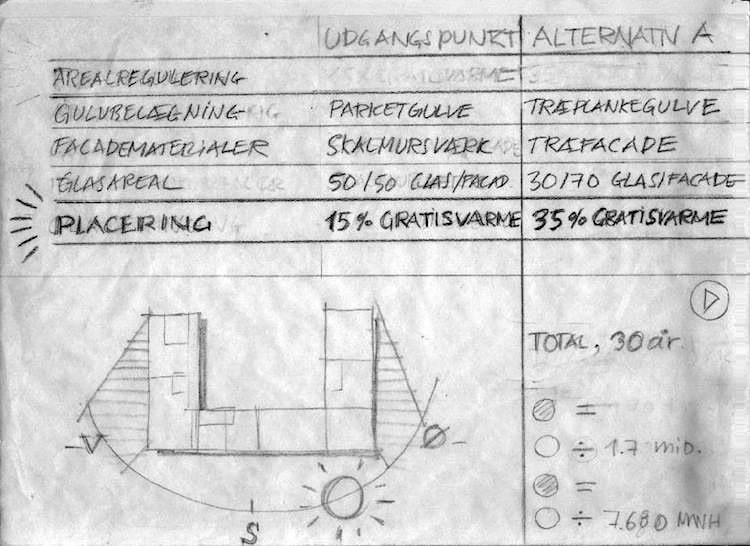 UDGANGSPUNKT ALTERNATIV A
AREALREGULERING
GULVBELÆGNING PARKETGULVE TRÆPLANKEGULVE
FACADEMATERIALER SKALMURSVÆRK TRÆFACADE
GLASAREAL 50/50 GLAS/FACAD. 30/70 GLAS/FACADE
PLACERING 15% GRATISVARME 35% GRATISVARME
TOTAL, 30 år.
=
÷ 1.7 mio.
=
÷ 7.680 MWH
V Ø
S